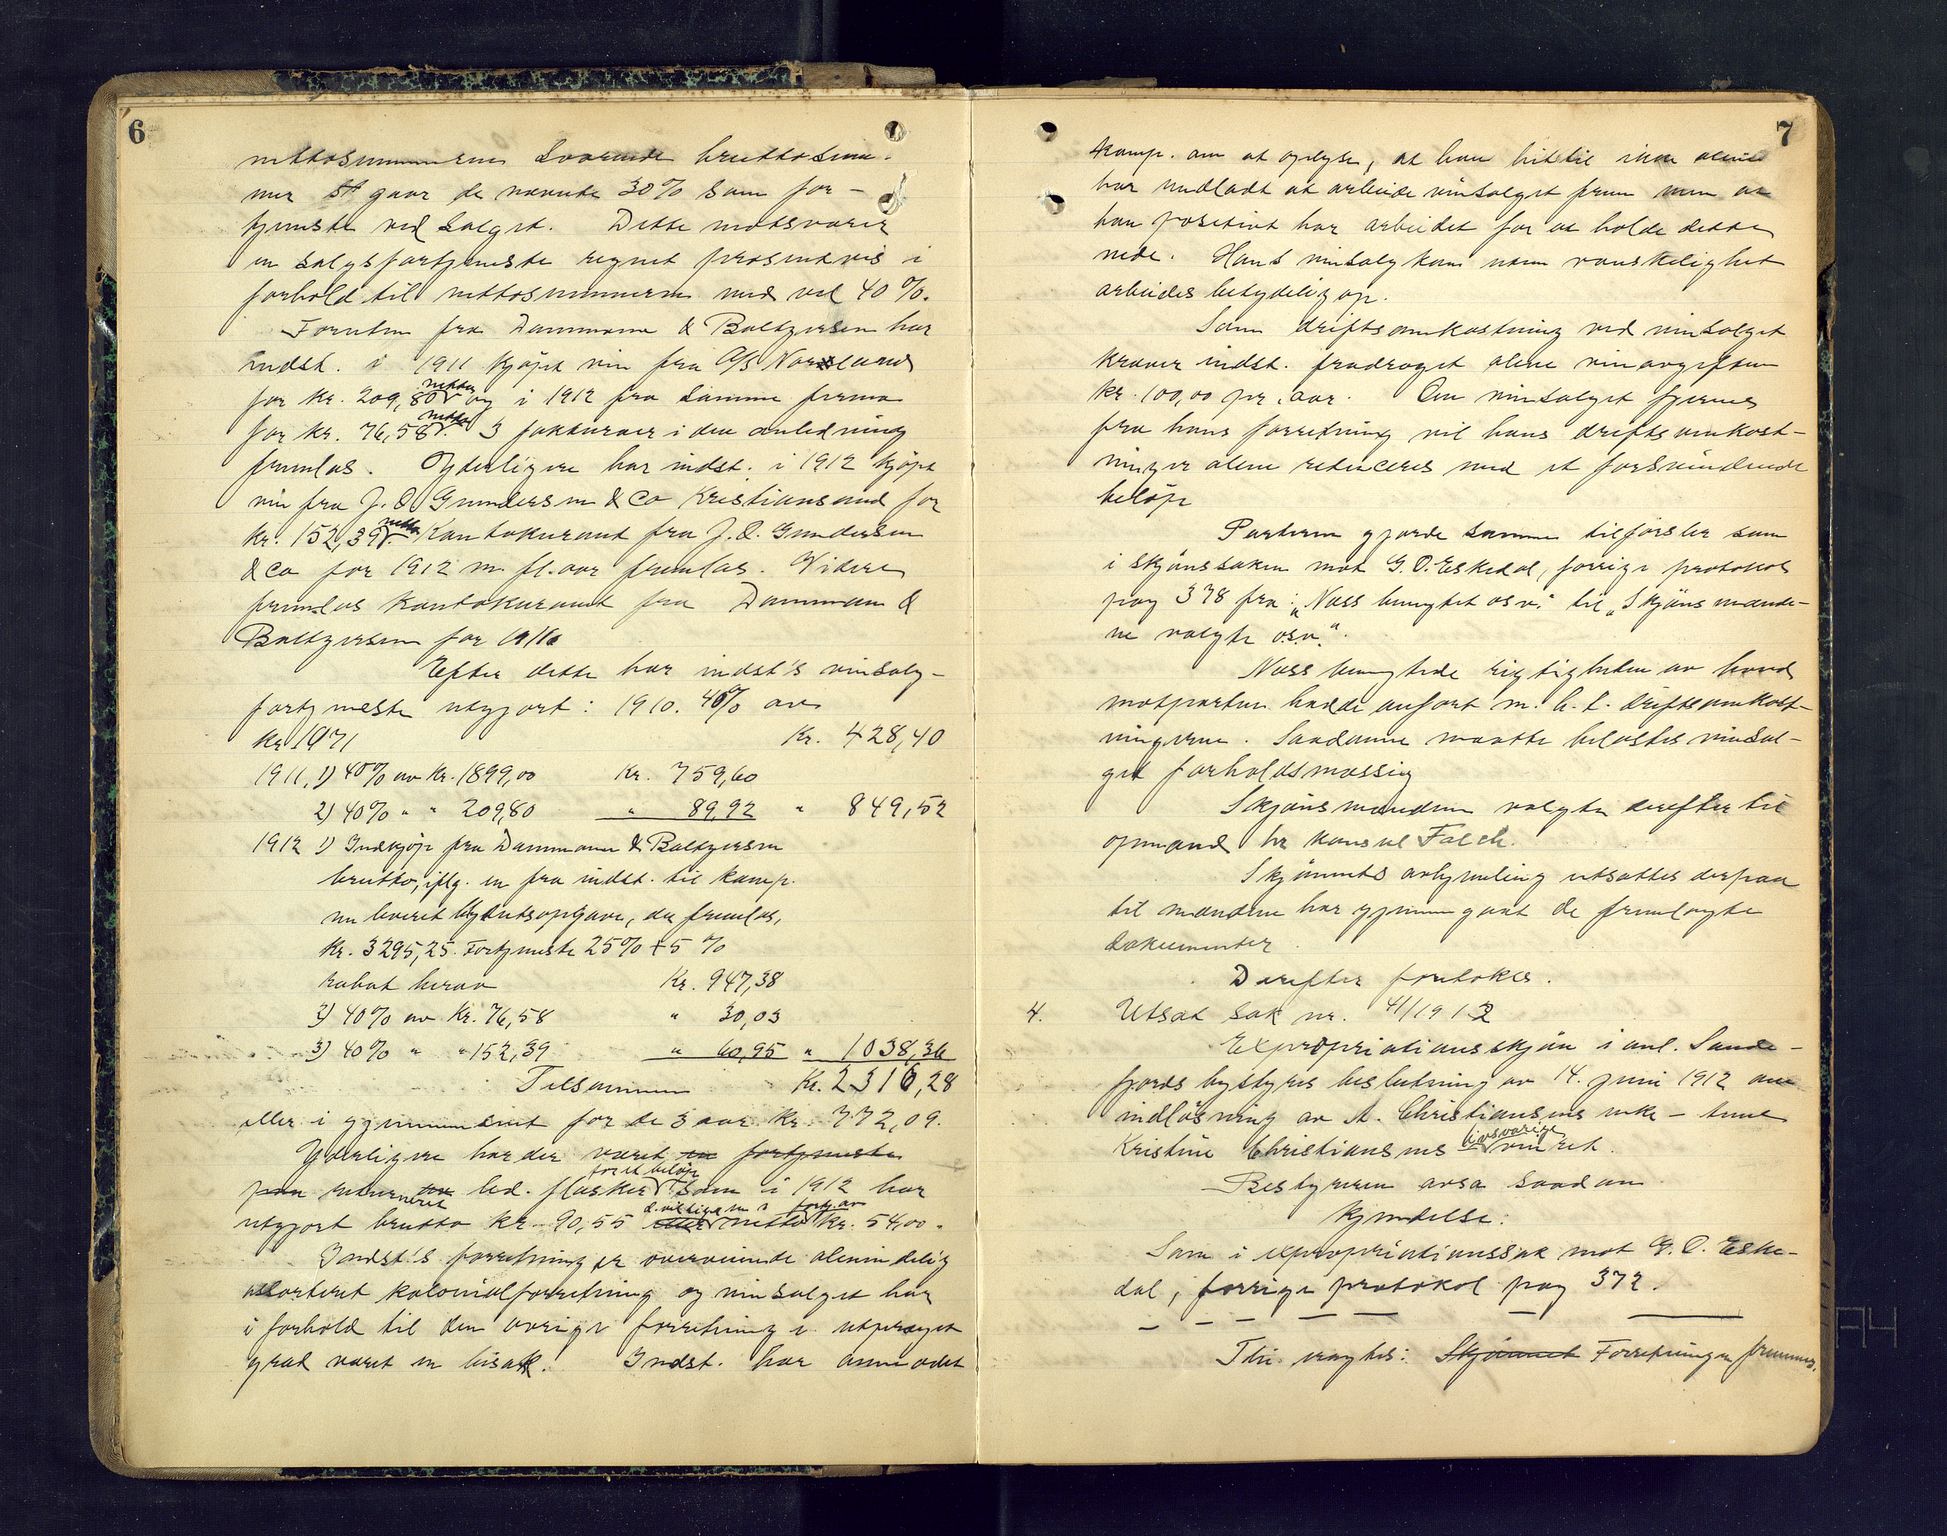 6
nettosummerne svarende bruttosum-
mer gaar de nævnte 30% som for-
tjeneste ved salget. Dette motsvarer
en salgsfortjeneste regnet prosentvis i
forhold til nettosummerne med vel 40%.
Foruten fra Dammann & Baltzersen har
indst. i 1911 kjøpt vin fra A/S Norsland
for kr. 209,80 netto og i 1912 fra samme firma
for kr. 76,58 netto. 3 fakturaer i den anledning
fremlas. Yderligere har indst. i 1912 kjøpt
vin fra J. O. Gundersen & Co Kristiansand for
kr. 152,39 netto. Kontokurant fra J. O. Gundersen
& Co for 1912 m. fl. aar fremlas. Videre
fremlas kontokurant fra Damman &
Baltzersen for 1911.
Efter dette har indst's vinsalg-
fortjeneste utgjort: 1910. 40% av
kr 1071 Kr. 428,40
1911, 1) 40% av Kr. 1899,00 Kr. 759,60
2) 40% " " 209,80 " 89,92 " 849,52
1912 1) Indkjøp fra Dammann & Baltzersen
brutto, iflg. en fra indst. til komp.
nu leveret opgave, der fremlas,
Kr. 3295,25. Fortjeneste 25% + 5%
rabat herav Kr. 947,38
2) 40% av Kr. 76,58 " 30,03
3) 40% " " 152,39 " 60,95 " 1038,36
Tilsammen Kr. 2316,28
eller i gjennemsnit for de 3 aar kr. 772,09.
Yderligere har der været en fortjeneste
paa returneret led. flasker for et beløp som i 1912 har
utgjort brutto kr. 90,55 netto kr. 54,00.
Indst's forretning er overveiende almindelig
assorteret kolonialforretning og vinsalget har
i forhold til den øvrige forretning i utpræget
grad været en bisak. Indst. har anmodet
7
komp. om at oplyse, at han hittil ikke alene
har undladt at arbeide vinsalget frem men at
han positivt har arbeidet for at holde dette
nede. Hans vinsalg kan uten vanskelighet
arbeides betydelig op.
Som driftsomkostning ved vinsalget
kræver indst. fradraget alene vinavgiften
kr. 100,00 pr. aar. Om vinsalget fjernes
fra hans forretning vil hans driftsomkost-
ninger alene reduceres med et forsvindende
beløp
Parterne gjorde samme tilførsler som
i skjønssaken mot G. O. Eskedal, forrige protokol
pag 378 fra: "Næss benegtet osv." til "Skjønsmænde-
ne valgte osv.".
Næss benegtede rigtigheten av hvad
motparten hadde anført m. h. t. driftsomkost-
ningerne. Saadanne maatte belastes vinsal-
get forholdsmæssig
Skjønsmændene valgte derefter til
opmand hr konsul Falch.
Skjønnets avhjemling utsattes derpaa
til mændene har gjennemgaat de fremlagte
dokumenter.
Derefter foretokes.
4. Utsat sak nr. 41/1913
Expropriationsskjøn i anl. Sande-
fjords bystyres beslutning av 14. juni 1912 om
indløsning av A. Christiansens enke – frue
Kristine Christiansens livsvarige vinret.
Bestyreren avsa saadan
Kjendelse:
Som i expropriationssak mot G. O. Eske-
dal, forrige protokol pag 372.
Thi eragtes: Skjønnet Forretningen fremmes.